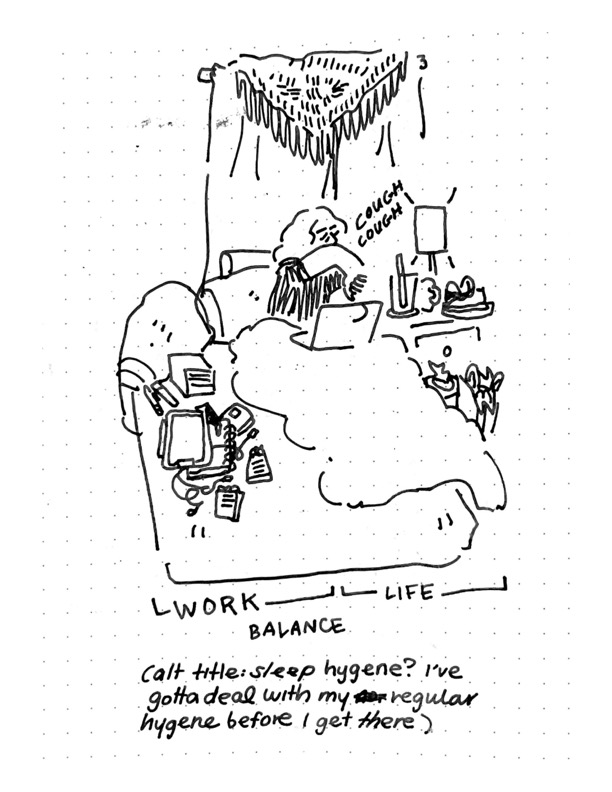 COUGH
COUGH
WORK
LIFE
BALANCE
(alt title: sleep hygene? I've
gotta deal with my regular
hygene before I get there)